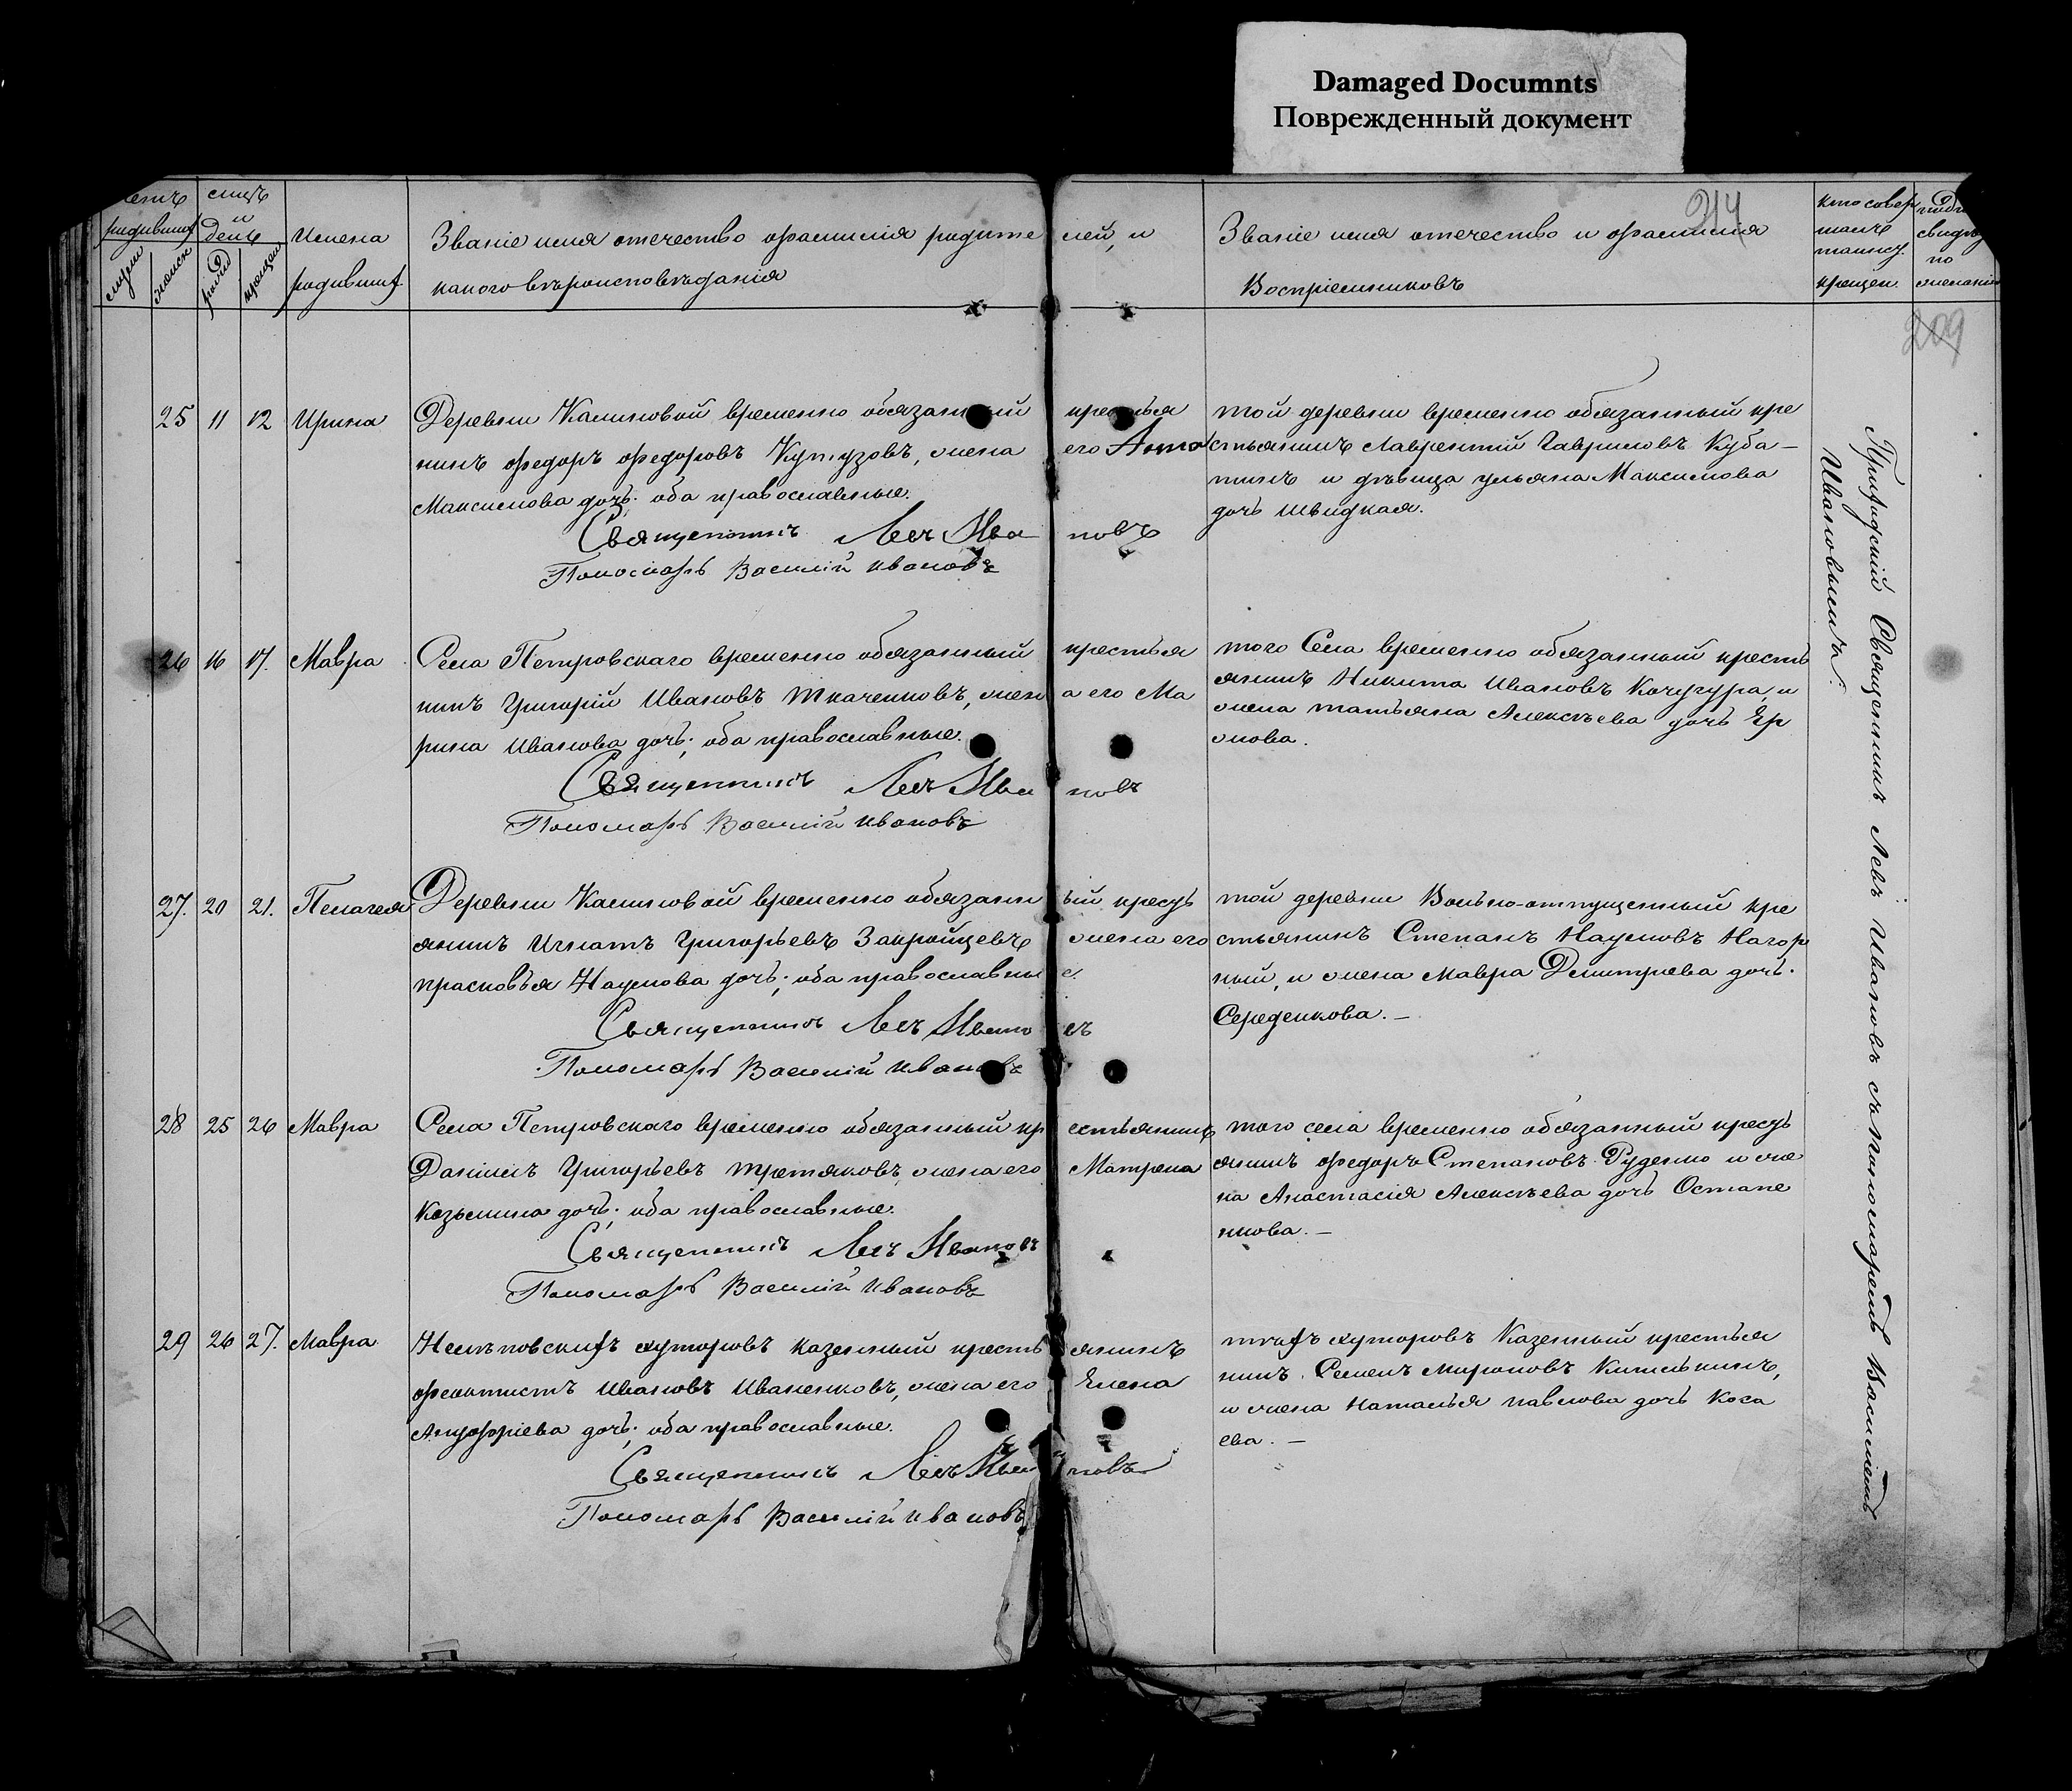 Damaged Documnts
Поврежденный документ
214
209
родивших
день
мужск
женск
рожд
крещен
Имена
родивших
Званіе имя отечество фамилія родителей, и
какого вѣроисповѣданія
Званіе имя отечество и фамилія
Воспріемниковъ
кто совер
шалъ
таинст
крещен
свидѣ
по
желанію
25 11 12 Ирина
Деревни Калиновой временно обязанный крестья
нинъ федоръ федоровъ Кутузовъ, жена его Анна
Максимова дочь; оба православные.
Священникъ Левъ Ивановъ
Пономарь Василій Ивановъ
той деревни временно обязанный кре
стьянинъ Лаврентій Гавриловъ Куба-
нинъ и дѣвица ульяна Максимова
дочь швидкая.
26 16 17. Мавра
Села Петровскаго временно обязанный крестья
нинъ Григорій Ивановъ Ткаченковъ, жена его Ма
рина Иванова дочь; оба православные.
Священникъ Левъ Ивановъ
Пономарь Василій Ивановъ
того Села временно обязанный кресть
янинъ Никита Ивановъ Кочугура, и
жена татьяна Алексѣева дочь Яр
мова.
27. 20 21. Пелагея
Деревни Калиновой временно обязанный кресть
янинъ Игнатъ Григорьевъ Закройщевъ жена его
прасковья Наумова дочь; оба православные
Священникъ Левъ Ивановъ
Пономарь Василій Ивановъ
той деревни Вольно-отпущенный кре
стьянинъ Степанъ Наумовъ Нагор
ный, и жена Мавра Дмитріева дочь.
Середенкова. –
28 25 26 Мавра
Села Петровскаго временно обязанный крестьянинъ
Даніилъ Григорьевъ третяковъ, жена его Матрена
Козьмина дочь; оба православные.
Священникъ Левъ Ивановъ
Пономарь Василій Ивановъ
того села временно обязанный кресть
янинъ федоръ Степановъ Руденко и же
на Анастасія Алексѣева дочь Остапе
нкова. –
29 26 27. Мавра
хуторовъ казенный крестьянинъ
феоктистъ Ивановъ Иваненковъ, жена его Елена
дочь; оба православные.
Священникъ Левъ Ивановъ
Пономарь Василій Ивановъ
тѣхъ хуторовъ Казенный крестья
нинъ Семенъ Мироновъ
и жена Наталья павлова дочь Коса
ева. –
Приходскій Священникъ Левъ Ивановъ съ пономаремъ Василіемъ
Ивановымъ.